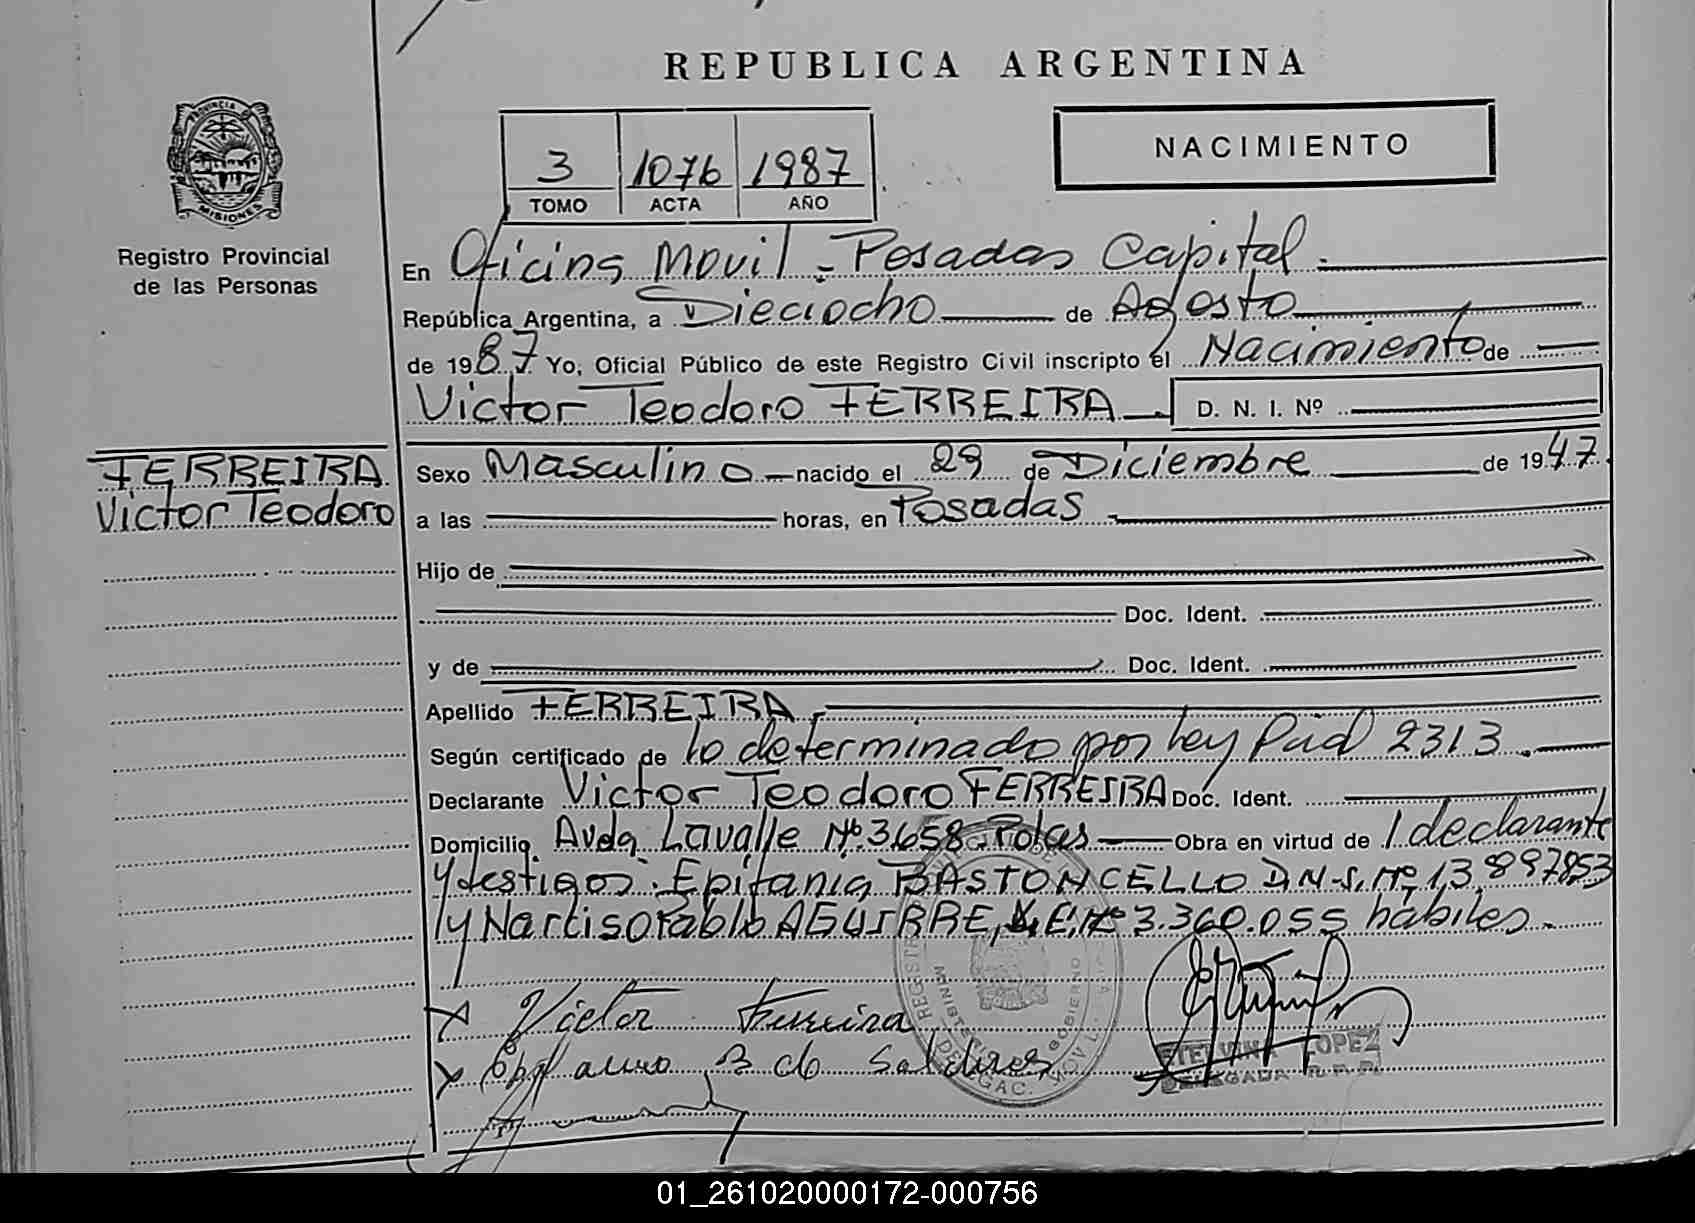 REPUBLICA ARGENTINA
PROVINCIA
MISIONES
Registro Provincial
de las Personas
3 1076 1987
TOMO ACTA AÑO
NACIMIENTO
En Oficina Movil - Posadas Capital.
República Argentina, a Dieciocho de Agosto
de 1987 Yo, Oficial Público de este Registro Civil inscripto el Nacimiento de
Victor Teodoro FERREIRA D. N. I. Nº
FERREIRA
Victor Teodoro
Sexo Masculino nacido el 29 de Diciembre de 1947.
a las horas, en Posadas
Hijo de
Doc. Ident.
y de Doc. Ident.
Apellido FERREIRA
Según certificado de lo determinado por Ley 2313.
Declarante Victor Teodoro FERREIRA Doc. Ident.
Domicilio Avda. Lavalle Nº 3658 Obra en virtud de declarante
y testigos: Epifania BASTONCELLO D.N.I. Nº 13.897853
y Narciso Pablo AGUIRRE, L.E. Nº 3.360.055 hábiles.
Victor Ferreira
ETELVINA LOPEZ
DELEGADA
01_261020000172-000756